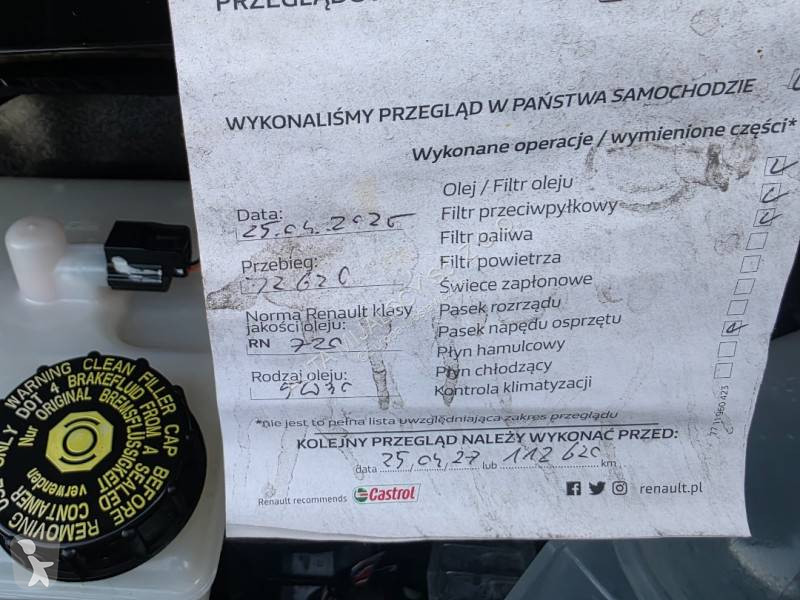 WYKONALIŚMY PRZEGLĄD W PAŃSTWA SAMOCHODZIE
Wykonane operacje / wymienione części*
Data:
25.04.2025
Przebieg:
72620
Norma Renault klasy
jakości oleju:
RN 720
Rodzaj oleju:
5W30
Olej / Filtr oleju
Filtr przeciwpyłkowy
Filtr paliwa
Filtr powietrza
Świece zapłonowe
Pasek rozrządu
Pasek napędu osprzętu
Płyn hamulcowy
Płyn chłodzący
Kontrola klimatyzacji
*nie jest to pełna lista uwzględniająca zakres przeglądu
KOLEJNY PRZEGLĄD NALEŻY WYKONAĆ PRZED:
data 25/04/27 lub 112620 km
Renault recommends Castrol
renault.pl
77 11 960 423
WARNING CLEAN FILLER CAP BEFORE REMOVING
USE ONLY DOT 4 BRAKEFLUID FROM A SEALED CONTAINER
Nur ORIGINAL BREMSFLÜSSIGKEIT verwenden